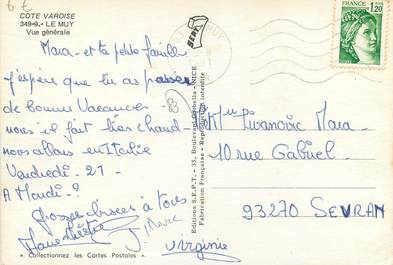 6 €
COTE VAROISE
349-9.- LE MUY
Vue générale
SEPT
FRANCE
1,20
Mara - et ta petite famille
j'espère que tu as passer
de bonnes Vacances -
nous il fait très chaud -
nous allons en Italie
Vendredi - 21 -
A Mardi - ?
grosses bises à tous
J. Marc
Virginie
« Collectionnez les Cartes Postales »
Editions S.E.P.T. - 33, Boulevard - NICE
Fabrication Française - Reproduction Interdite
Ivanovic Mara
10 rue Gabriel
93270 SEVRAN